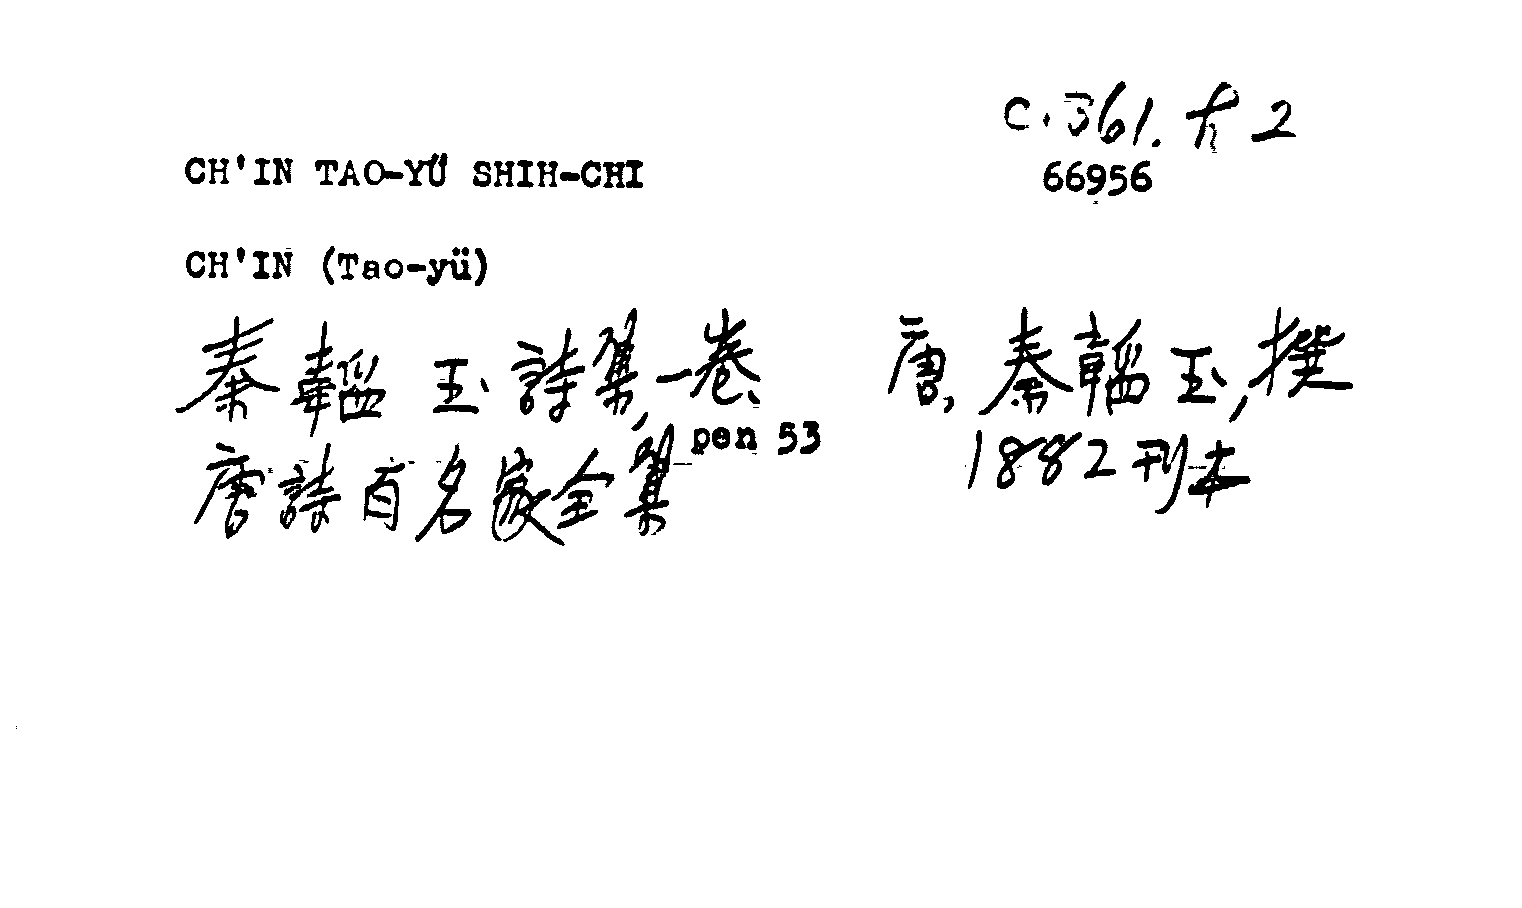 C.361. 2
66956
CH'IN TAO-YÜ SHIH-CHI
CH'IN (Tao-yü)
秦韜玉詩集,一卷、 唐、秦韜玉,撰
pen 53
唐詩百名家全集 1882刊本